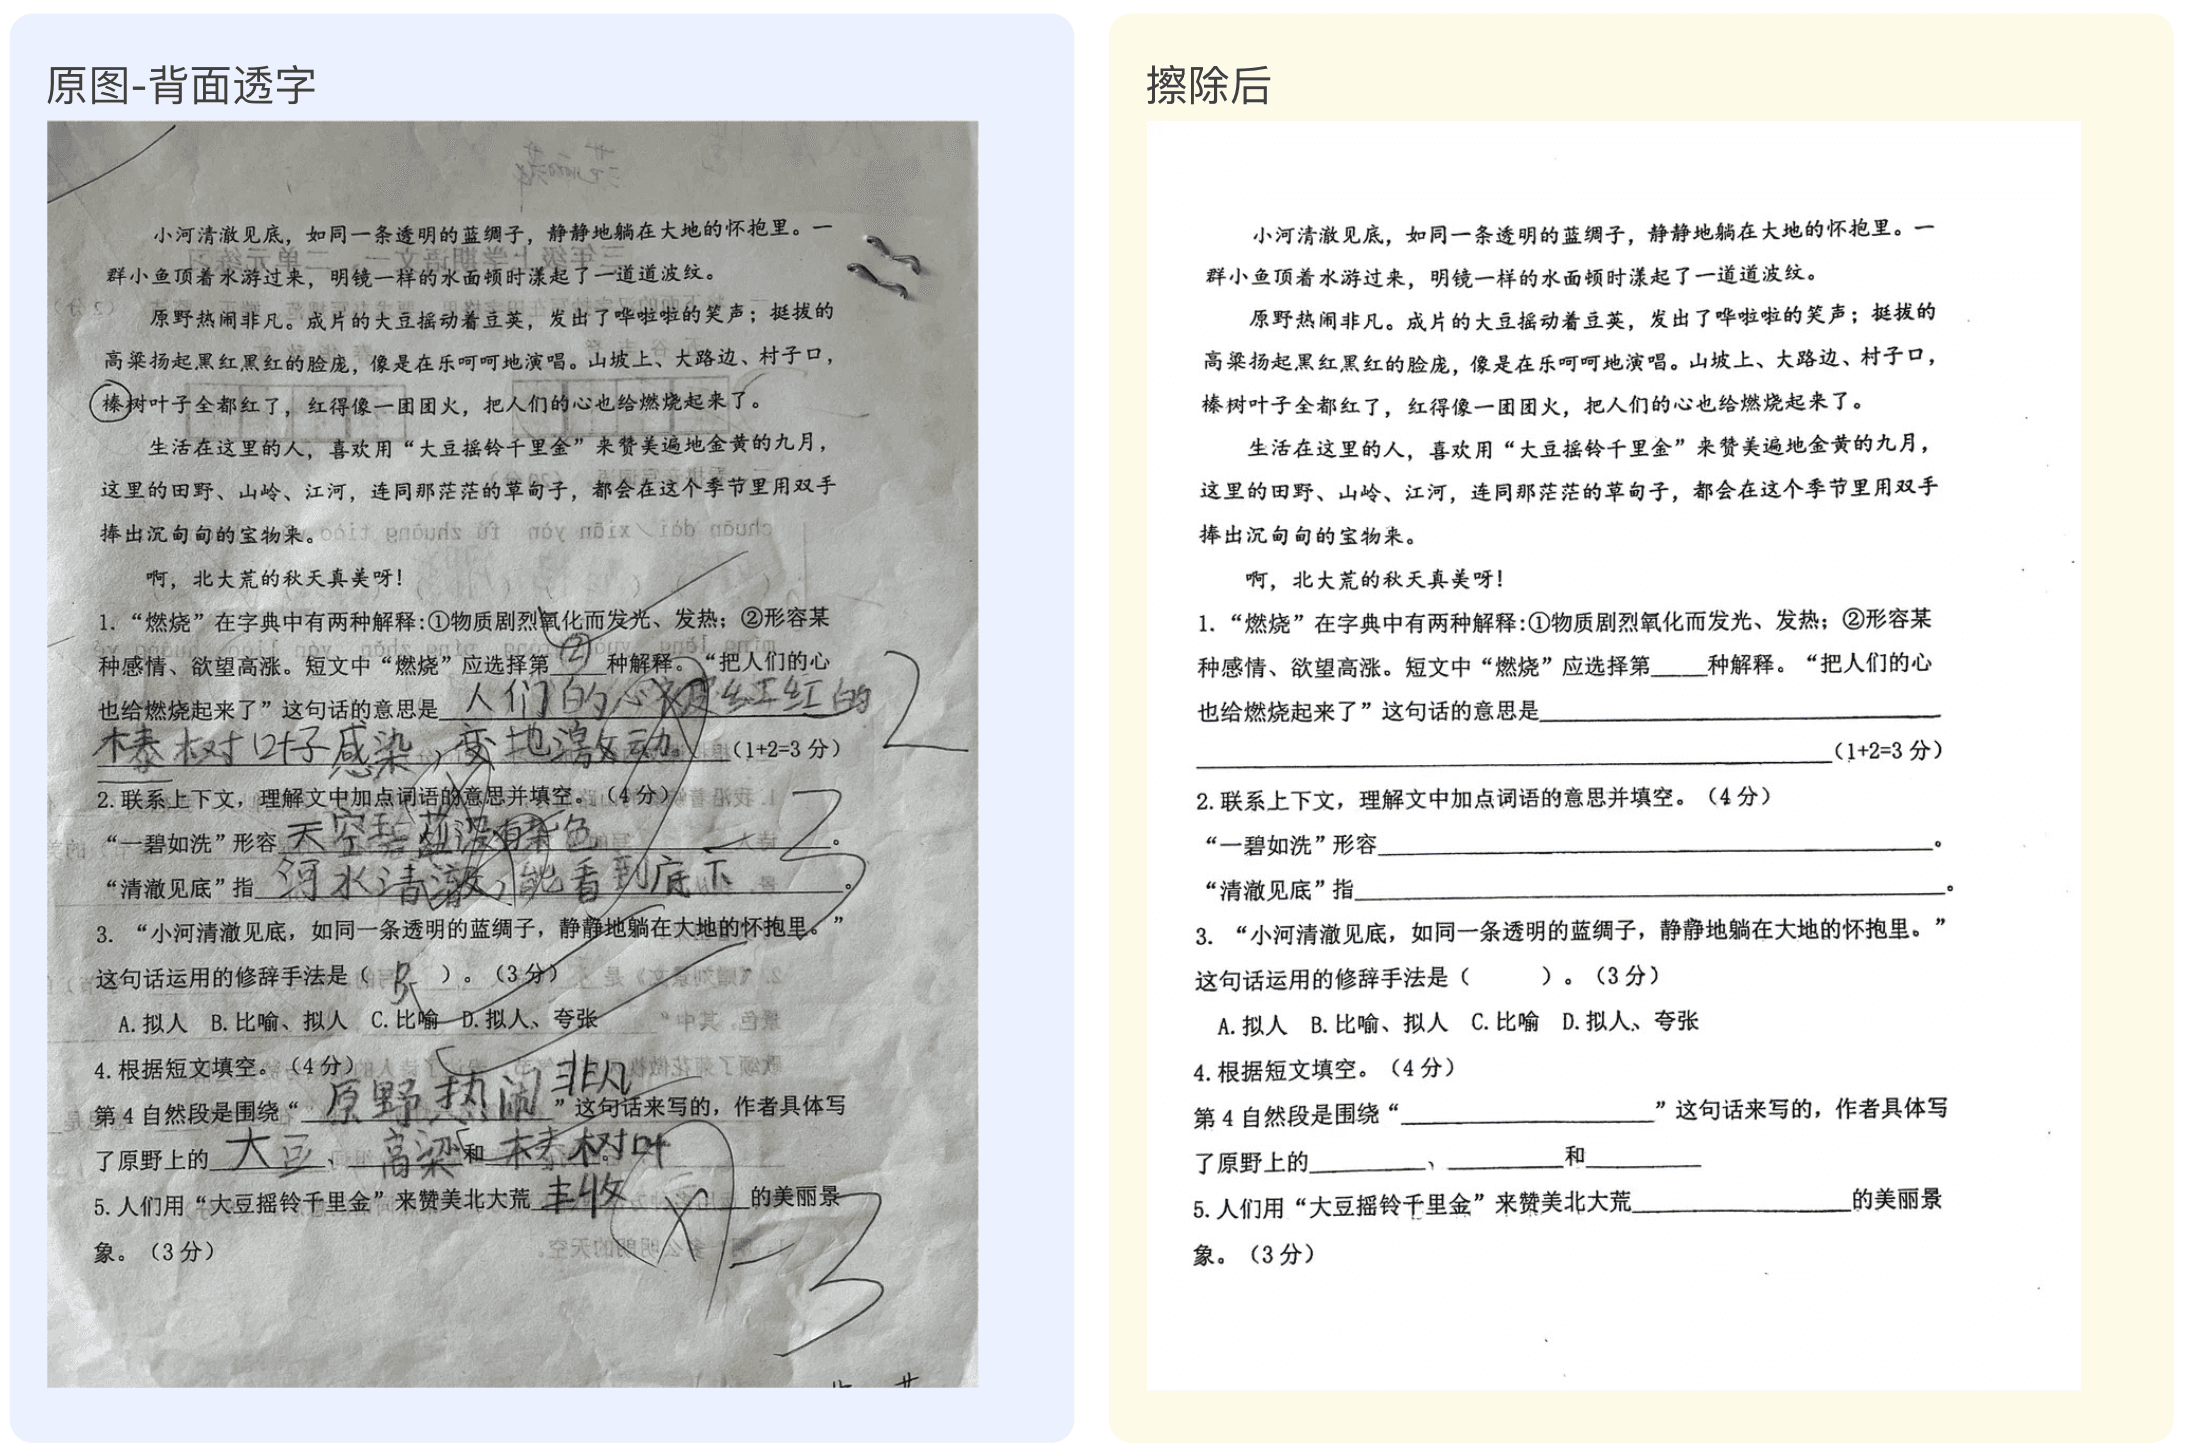 原图-背面透字
小河清澈见底，如同一条透明的蓝绸子，静静地躺在大地的怀抱里。一
群小鱼顶着水游过来，明镜一样的水面顿时漾起了一道道波纹。
原野热闹非凡。成片的大豆摇动着豆荚，发出了哗啦啦的笑声；挺拔的
高粱扬起黑红黑红的脸庞，像是在乐呵呵地演唱。山坡上、大路边、村子口，
榛树叶子全都红了，红得像一团团火，把人们的心也给燃烧起来了。
生活在这里的人，喜欢用“大豆摇铃千里金”来赞美遍地金黄的九月，
这里的田野、山岭、江河，连同那茫茫的草甸子，都会在这个季节里用双手
捧出沉甸甸的宝物来。
啊，北大荒的秋天真美呀！
1. “燃烧”在字典中有两种解释:①物质剧烈氧化而发光、发热；②形容某
种感情、欲望高涨。短文中“燃烧”应选择第②种解释。“把人们的心
也给燃烧起来了”这句话的意思是人们的心被红红的
榛树叶子感染，变地激动。(1+2=3 分)
2.联系上下文，理解文中加点词语的意思并填空。（4 分）
“一碧如洗”形容天空碧蓝没有杂色。
“清澈见底”指河水清澈，能看到底下。
3. “小河清澈见底，如同一条透明的蓝绸子，静静地躺在大地的怀抱里。”
这句话运用的修辞手法是（B）。（3 分）
A.拟人 B.比喻、拟人 C.比喻 D.拟人、夸张
4.根据短文填空。（4 分）
第 4 自然段是围绕“原野热闹非凡”这句话来写的，作者具体写
了原野上的大豆、高粱和榛树叶
5.人们用“大豆摇铃千里金”来赞美北大荒丰收的美丽景
象。（3 分）
2
2
3
-3
擦除后
小河清澈见底，如同一条透明的蓝绸子，静静地躺在大地的怀抱里。一
群小鱼顶着水游过来，明镜一样的水面顿时漾起了一道道波纹。
原野热闹非凡。成片的大豆摇动着豆荚，发出了哗啦啦的笑声；挺拔的
高粱扬起黑红黑红的脸庞，像是在乐呵呵地演唱。山坡上、大路边、村子口，
榛树叶子全都红了，红得像一团团火，把人们的心也给燃烧起来了。
生活在这里的人，喜欢用“大豆摇铃千里金”来赞美遍地金黄的九月，
这里的田野、山岭、江河，连同那茫茫的草甸子，都会在这个季节里用双手
捧出沉甸甸的宝物来。
啊，北大荒的秋天真美呀！
1. “燃烧”在字典中有两种解释:①物质剧烈氧化而发光、发热；②形容某
种感情、欲望高涨。短文中“燃烧”应选择第_____种解释。“把人们的心
也给燃烧起来了”这句话的意思是__________
__________(1+2=3 分)
2.联系上下文，理解文中加点词语的意思并填空。（4 分）
“一碧如洗”形容__________。
“清澈见底”指__________。
3. “小河清澈见底，如同一条透明的蓝绸子，静静地躺在大地的怀抱里。”
这句话运用的修辞手法是（　　）。（3 分）
A.拟人 B.比喻、拟人 C.比喻 D.拟人、夸张
4.根据短文填空。（4 分）
第 4 自然段是围绕“__________”这句话来写的，作者具体写
了原野上的_____、_____和_____
5.人们用“大豆摇铃千里金”来赞美北大荒__________的美丽景
象。（3 分）